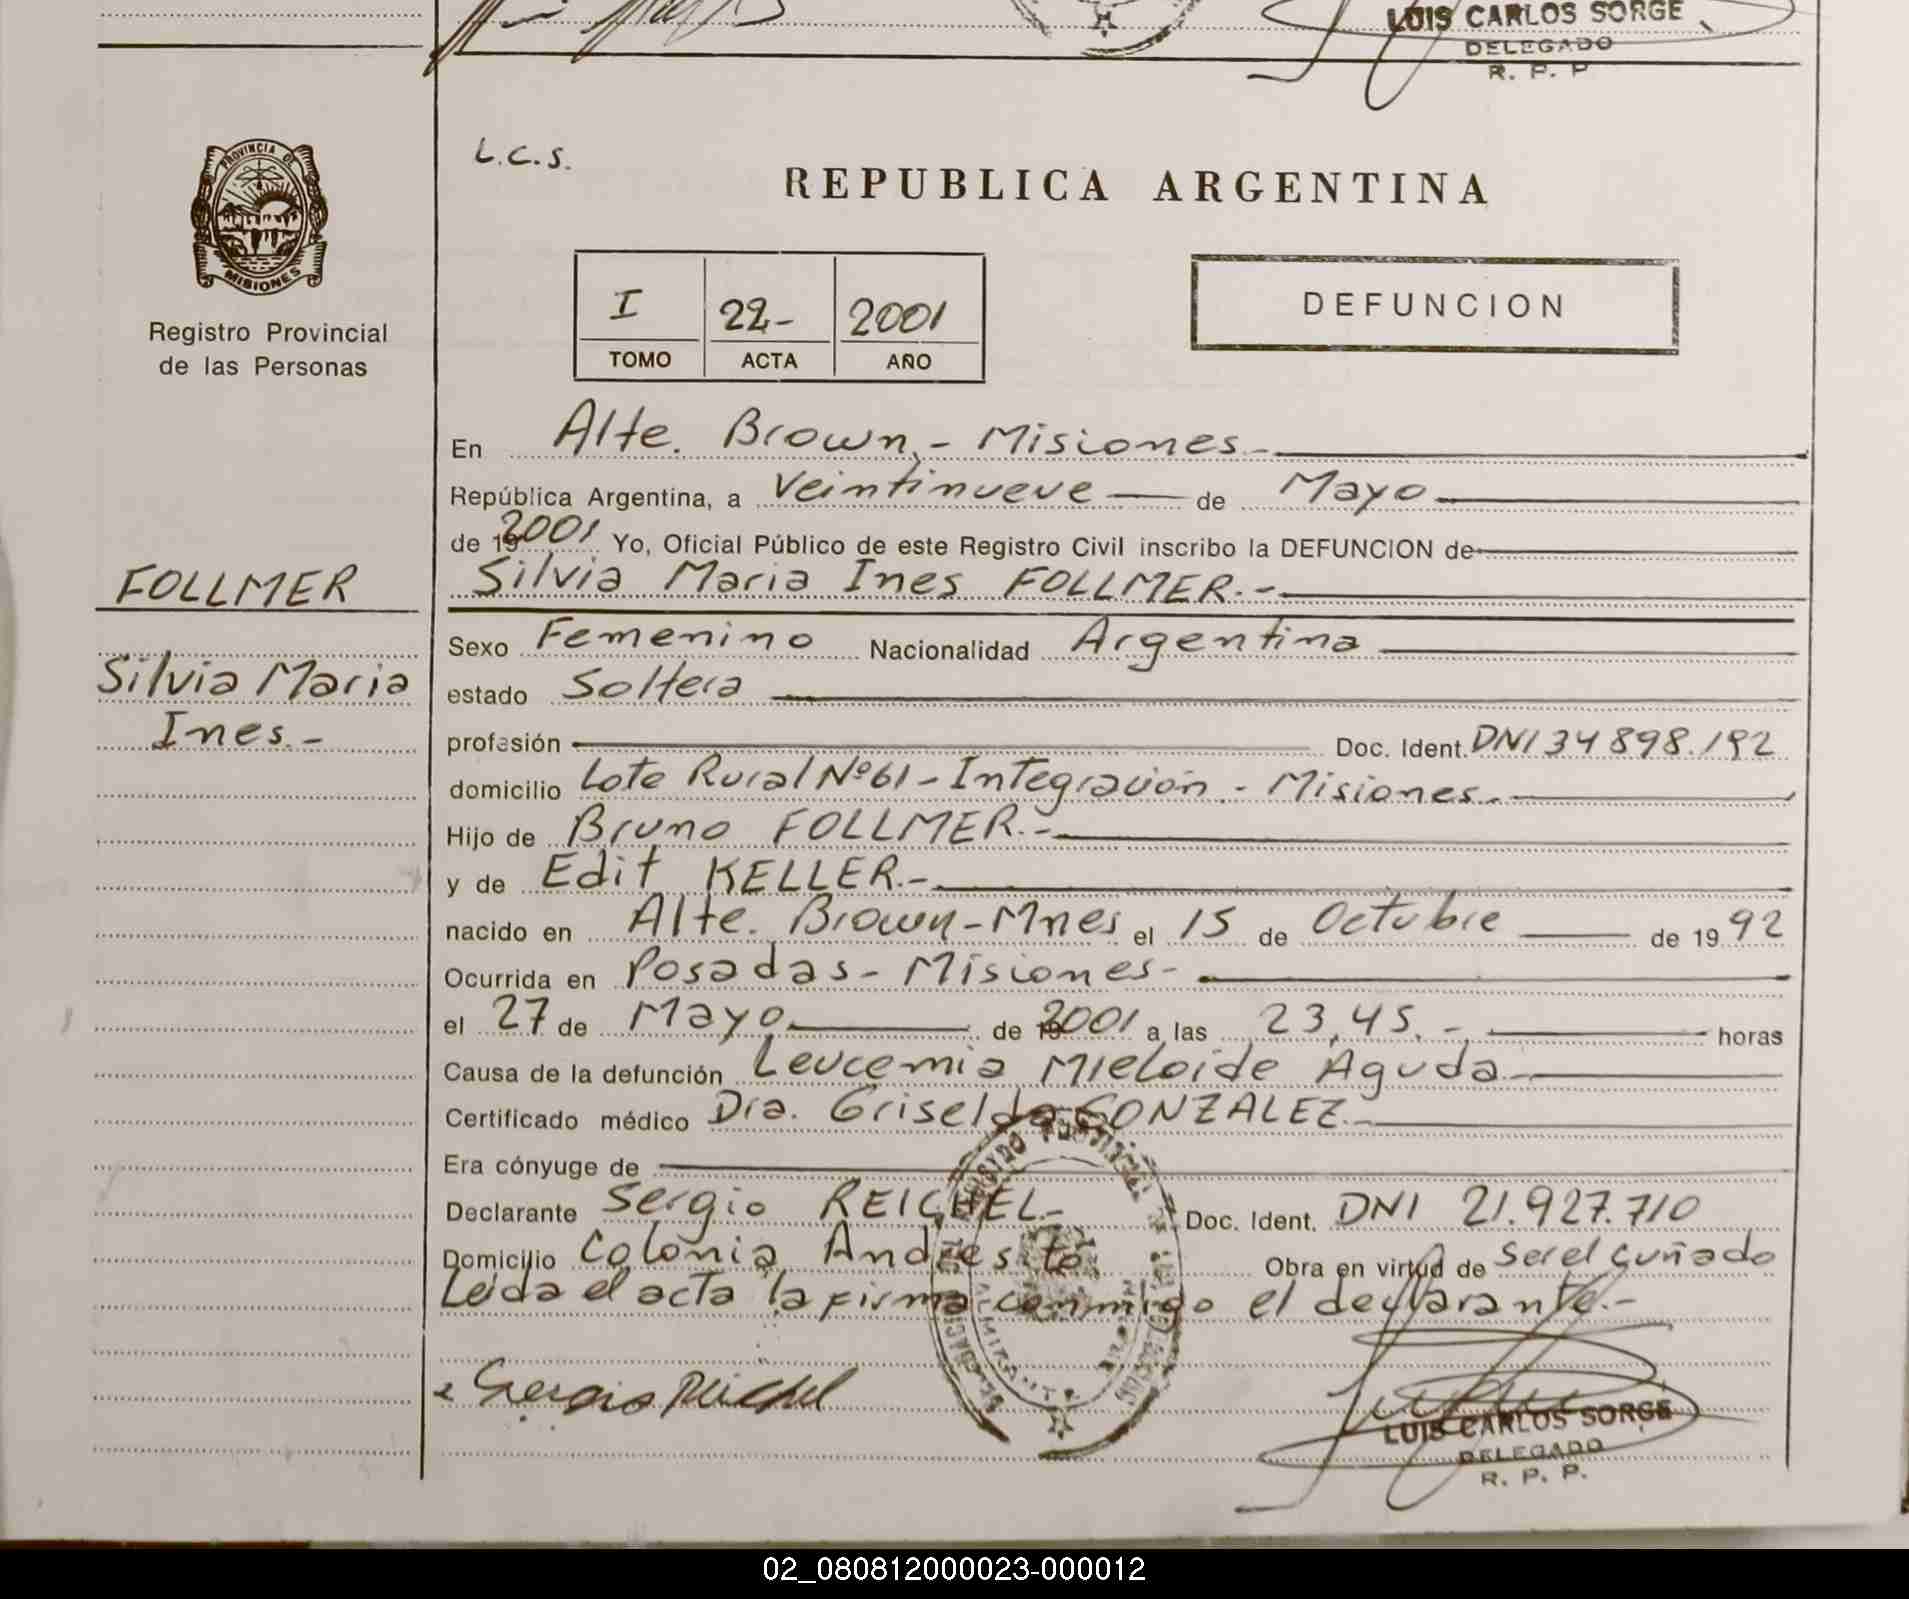 LUIS CARLOS SORGE
DELEGADO
R. P. P
PROVINCIA DE
MISIONES
Registro Provincial
de las Personas
L.C.S.
REPUBLICA ARGENTINA
I 22- 2001
TOMO ACTA AÑO
DEFUNCION
En Alte. Brown,- Misiones-
República Argentina, a Veintinueve de Mayo
de 192001 Yo, Oficial Público de este Registro Civil inscribo la DEFUNCION de
FOLLMER
Silvia Maria Ines FOLLMER.-
Silvia Maria
Ines.-
Sexo Femenino Nacionalidad Argentina
estado Soltera
profesión Doc. Ident. DNI 34 898.192
domicilio Lote Rural Nº61-Integración - Misiones.-
Hijo de Bruno FOLLMER.-
y de Edit KELLER.-
nacido en Alte. Brown-Mnes el 15 de Octubre de 19 92
Ocurrida en Posadas- Misiones-
el 27 de Mayo de 2001 a las 23,45.- horas
Causa de la defunción Leucemia Mieloide Aguda
Certificado médico Dra. Griselda GONZALEZ.-
Era cónyuge de
Declarante Sergio REICHEL- Doc. Ident. DNI 21.927.710
Domicilio Colonia Andresito Obra en virtud de Ser el cuñado
Leida el acta la firma conmigo el declarante.-
Sergio Reichel
LUIS CARLOS SORGE
DELEGADO
R. P. P.
02_080812000023-000012